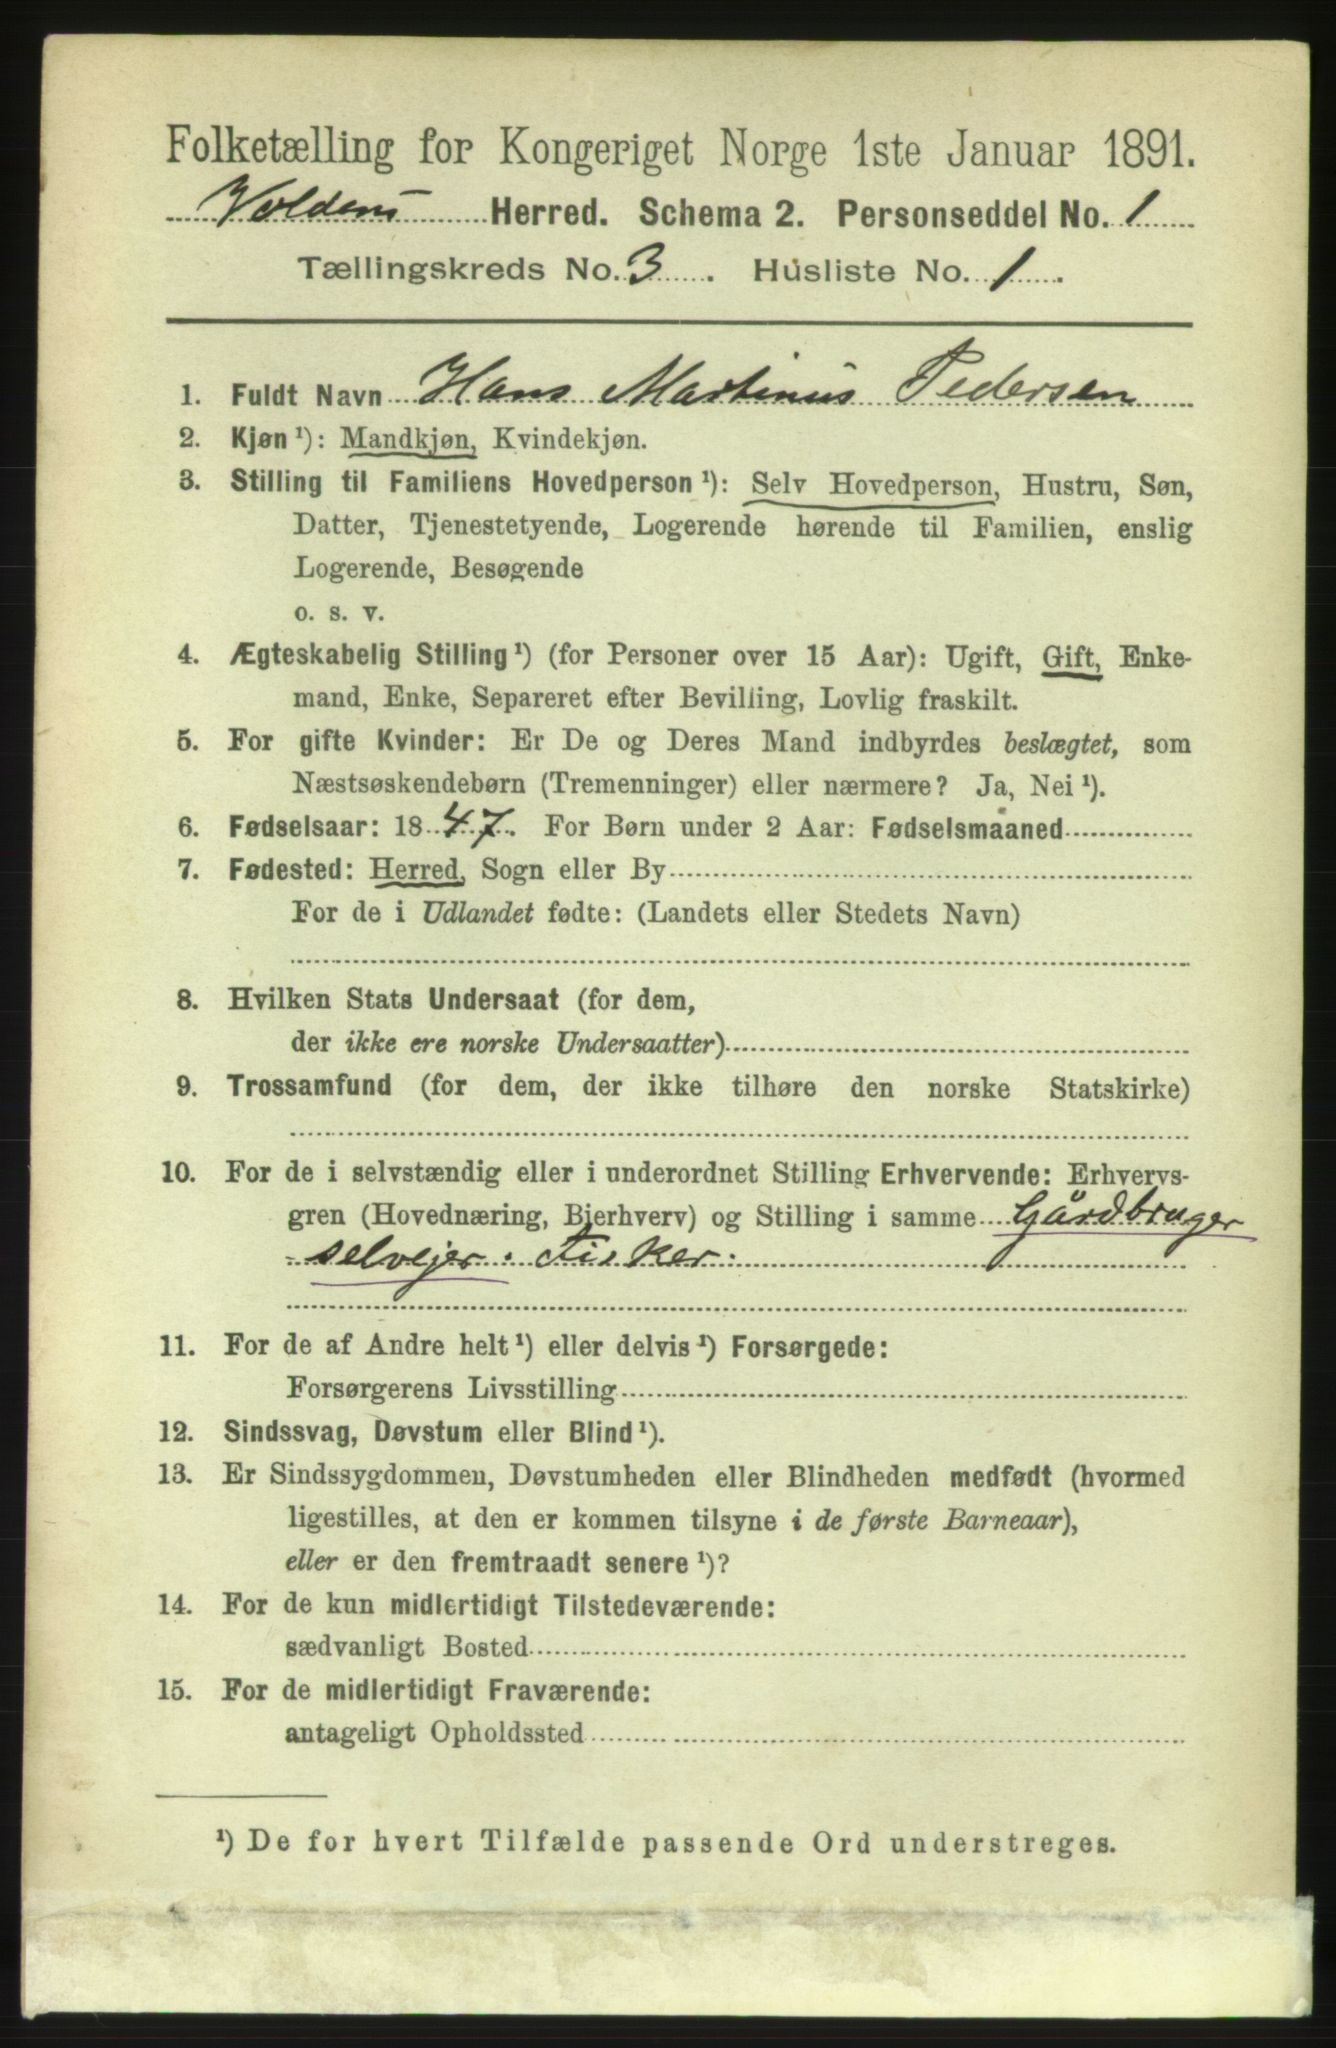 Folketælling for Kongeriget Norge 1ste Januar 1891.
Voldens Herred. Schema 2. Personseddel No. 1
Tællingskreds No. 3. Husliste No. 1.
1. Fuldt Navn Hans Martinus Pedersen
2. Kjøn ¹): Mandkjøn, Kvindekjøn.
3. Stilling til Familiens Hovedperson ¹): Selv Hovedperson, Hustru, Søn,
Datter, Tjenestetyende, Logerende hørende til Familien, enslig
Logerende, Besøgende
o. s. v.
4. Ægteskabelig Stilling ¹) (for Personer over 15 Aar): Ugift, Gift, Enke-
mand, Enke, Separeret efter Bevilling, Lovlig fraskilt.
5. For gifte Kvinder: Er De og Deres Mand indbyrdes beslægtet, som
Næstsøskendebørn (Tremenninger) eller nærmere? Ja, Nei ¹).
6. Fødselsaar: 1847. For Børn under 2 Aar: Fødselsmaaned
7. Fødested: Herred, Sogn eller By
For de i Udlandet fødte: (Landets eller Stedets Navn)
8. Hvilken Stats Undersaat (for dem,
der ikke ere norske Undersaatter)
9. Trossamfund (for dem, der ikke tilhøre den norske Statskirke)
10. For de i selvstændig eller i underordnet Stilling Erhvervende: Erhvervs-
gren (Hovednæring, Bierhverv) og Stilling i samme Gårdbruger
selvejer. Fisker.
11. For de af Andre helt ¹) eller delvis ¹) Forsørgede:
Forsørgerens Livsstilling
12. Sindssvag, Døvstum eller Blind ¹).
13. Er Sindssygdommen, Døvstumheden eller Blindheden medfødt (hvormed
ligestilles, at den er kommen tilsyne i de første Barneaar),
eller er den fremtraadt senere ¹)?
14. For de kun midlertidigt Tilstedeværende:
sædvanligt Bosted
15. For de midlertidigt Fraværende:
antageligt Opholdssted
¹) De for hvert Tilfælde passende Ord understreges.